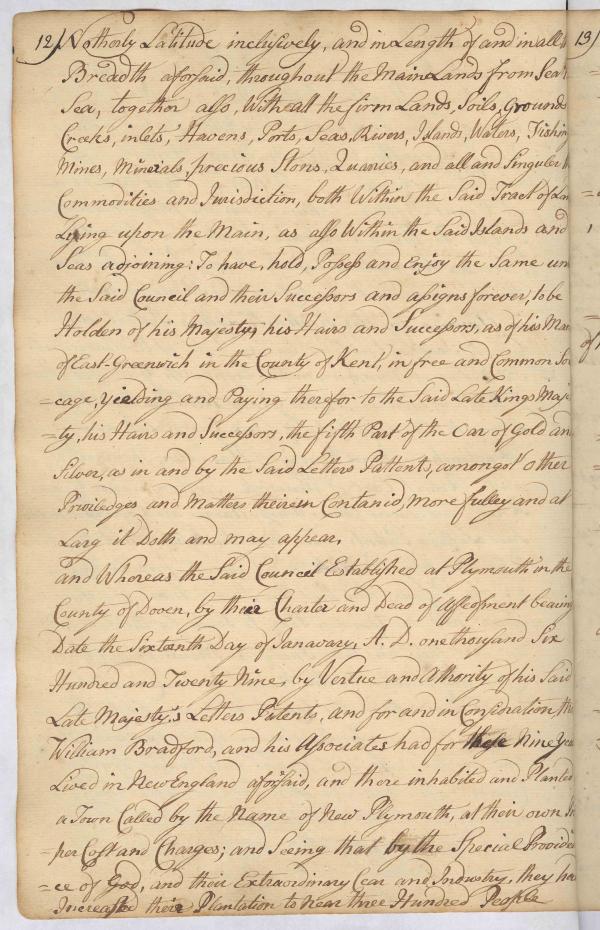 12) Notherly Latitude inclusively, and in Length of and in all
Breadth aforsaid, throughout the Main Lands from Sea
Sea, together allso, With all the firm Lands, Soils, Grounds
Creeks, inlets, Havens, Ports, Seas, Rivers, Islands, Waters, Fishin
Mines, Minerals, precious Stons, Quaries, and all and Singuler
Commodities and Jurisdiction, both Within the Said Tract of Lan
Lying upon the Main, as allso Within the Said Islands and
Seas adjoining: To have, hold, Possess and Enjoy the Same un
the Said Council and their Successors and assigns forever, to be
Holden of his Majesty, his Hairs and Successors, as of his Man
of East-Greenwich in the County of Kent, in free and Common So
=cage, yielding and Paying therefor to the Said Late Kings Maje
=ty, his Hairs and Successors, the fifth Part of the Oar of Gold and
Silver, as in and by the Said Letters Pattents, amongst other
Priviledges and Matters therein Contanid, more fulley and at
Larg it Doth and may appear.
and Whereas the Said Council Established at Plymouth in the
County of Doven, by their Charter and Dead of Assesment bearing
Date the Sixteenth Day of Janavary, A. D. one thousand Six
Hundred and Twenty Nine, by Vertue and Athority of his Said
Late Majesty,s Letters Patents, and for and in Consideration, tha
William Bradford, and his Associates had for these Nine Year
Lived in New England aforsaid, and there inhabited and Planted
a Town Called by the Name of New Plymouth, at their own
=per Cost and Charges; and Seeing that by the Special Providen
=ce of God, and their Extraordinary Cear and Industry, they have
Increased their Plantation to Near three Hundred People
13)